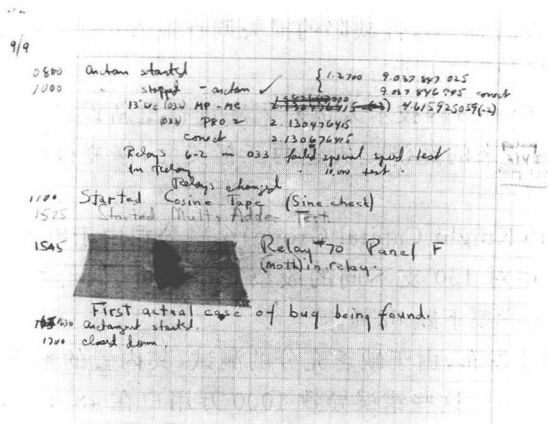 9/9
0800 antan started { 1.2700 9.037 847 025
1000 " stopped - antan ✓ 9.037 846 995 correct
13"uc (032) MP - MC 2.130476415 (-3) 4.615925059(-2)
(033) PRO 2 2.130476415
correct 2.130676415
Relays 6-2 in 033 failed special speed test
in relay " 10.000 test .
Relays changed
1100 Started Cosine Tape (Sine check)
1525 Started Mult+Adder Test.
1545 Relay #70 Panel F
(moth) in relay.
First actual case of bug being found.
1630 antangent started.
1700 closed down.